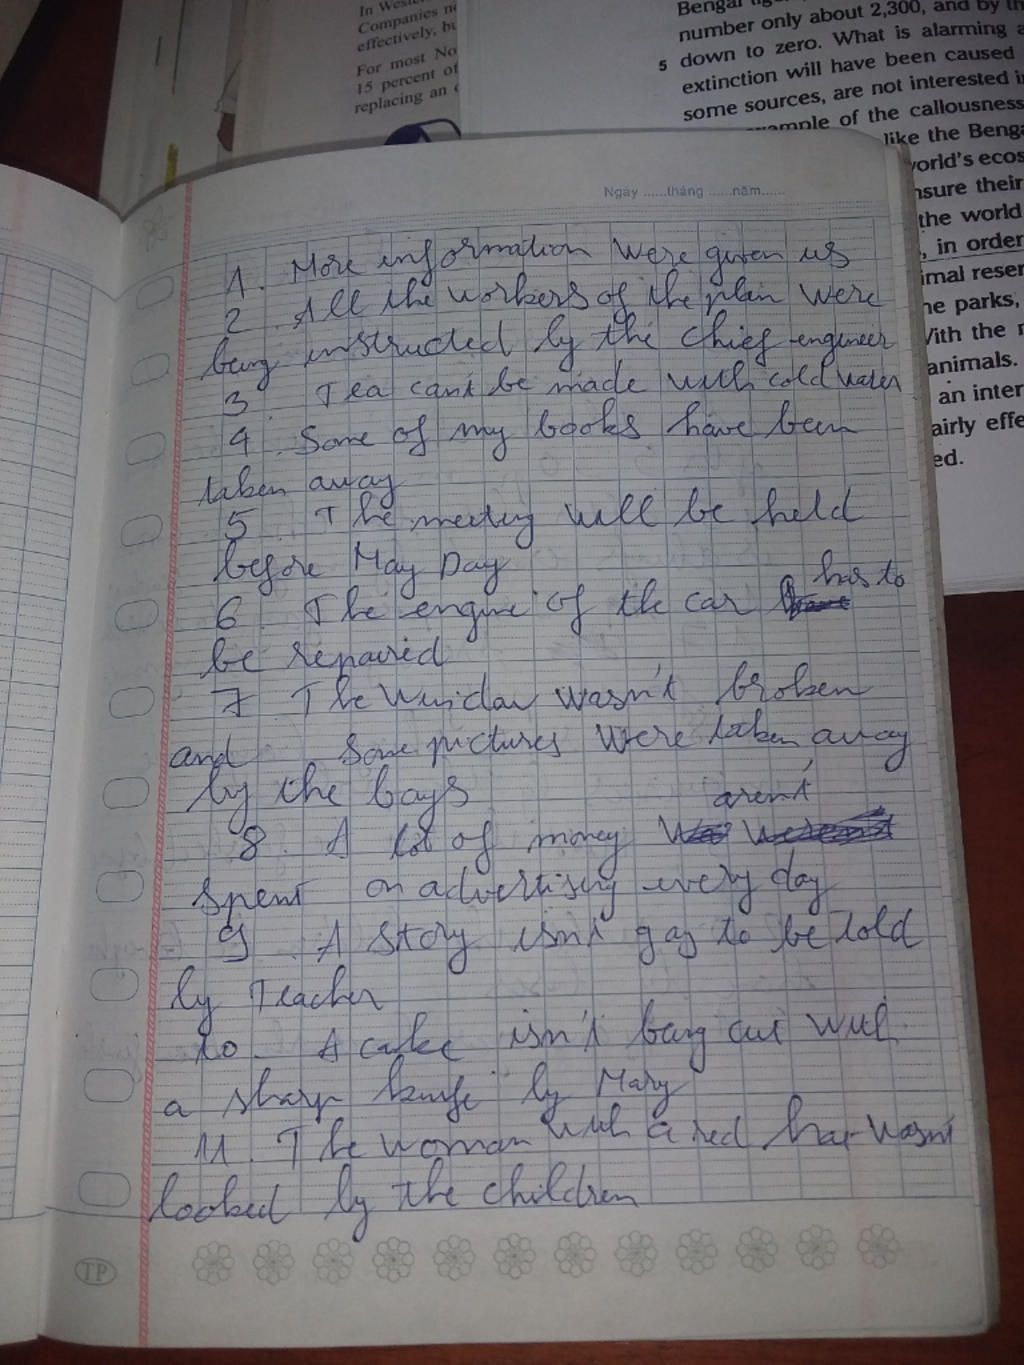 In Weste
Companies n
effectively, bu
For most No
15 percent of
replacing an
Bengal
number only about 2,300, and by th
5 down to zero. What is alarming a
extinction will have been caused
some sources, are not interested i
ample of the callousness
like the Benga
world's ecos
nsure their
the world
, in order
imal reser
he parks,
With the r
animals.
an inter
airly effe
ed.
Ngày ......tháng ......năm......
1. More information were given us
2. All the workers of the plan were
being instructed by the chief engineer
3. Tea can't be made with cold water
4. Some of my books have been
taken away
5. The meeting will be held
before May Day
6. The engine of the car has to
be repaired
7. The window wasn't broken
and some pictures were taken away
by the boys
8. A lot of money aren't
spent on advertising every day
9. A story isn't to be told
by Teacher
10. A cake isn't cut with
a sharp knife by Mary
11. The woman with a red hat wasn't
looked by the children
TP